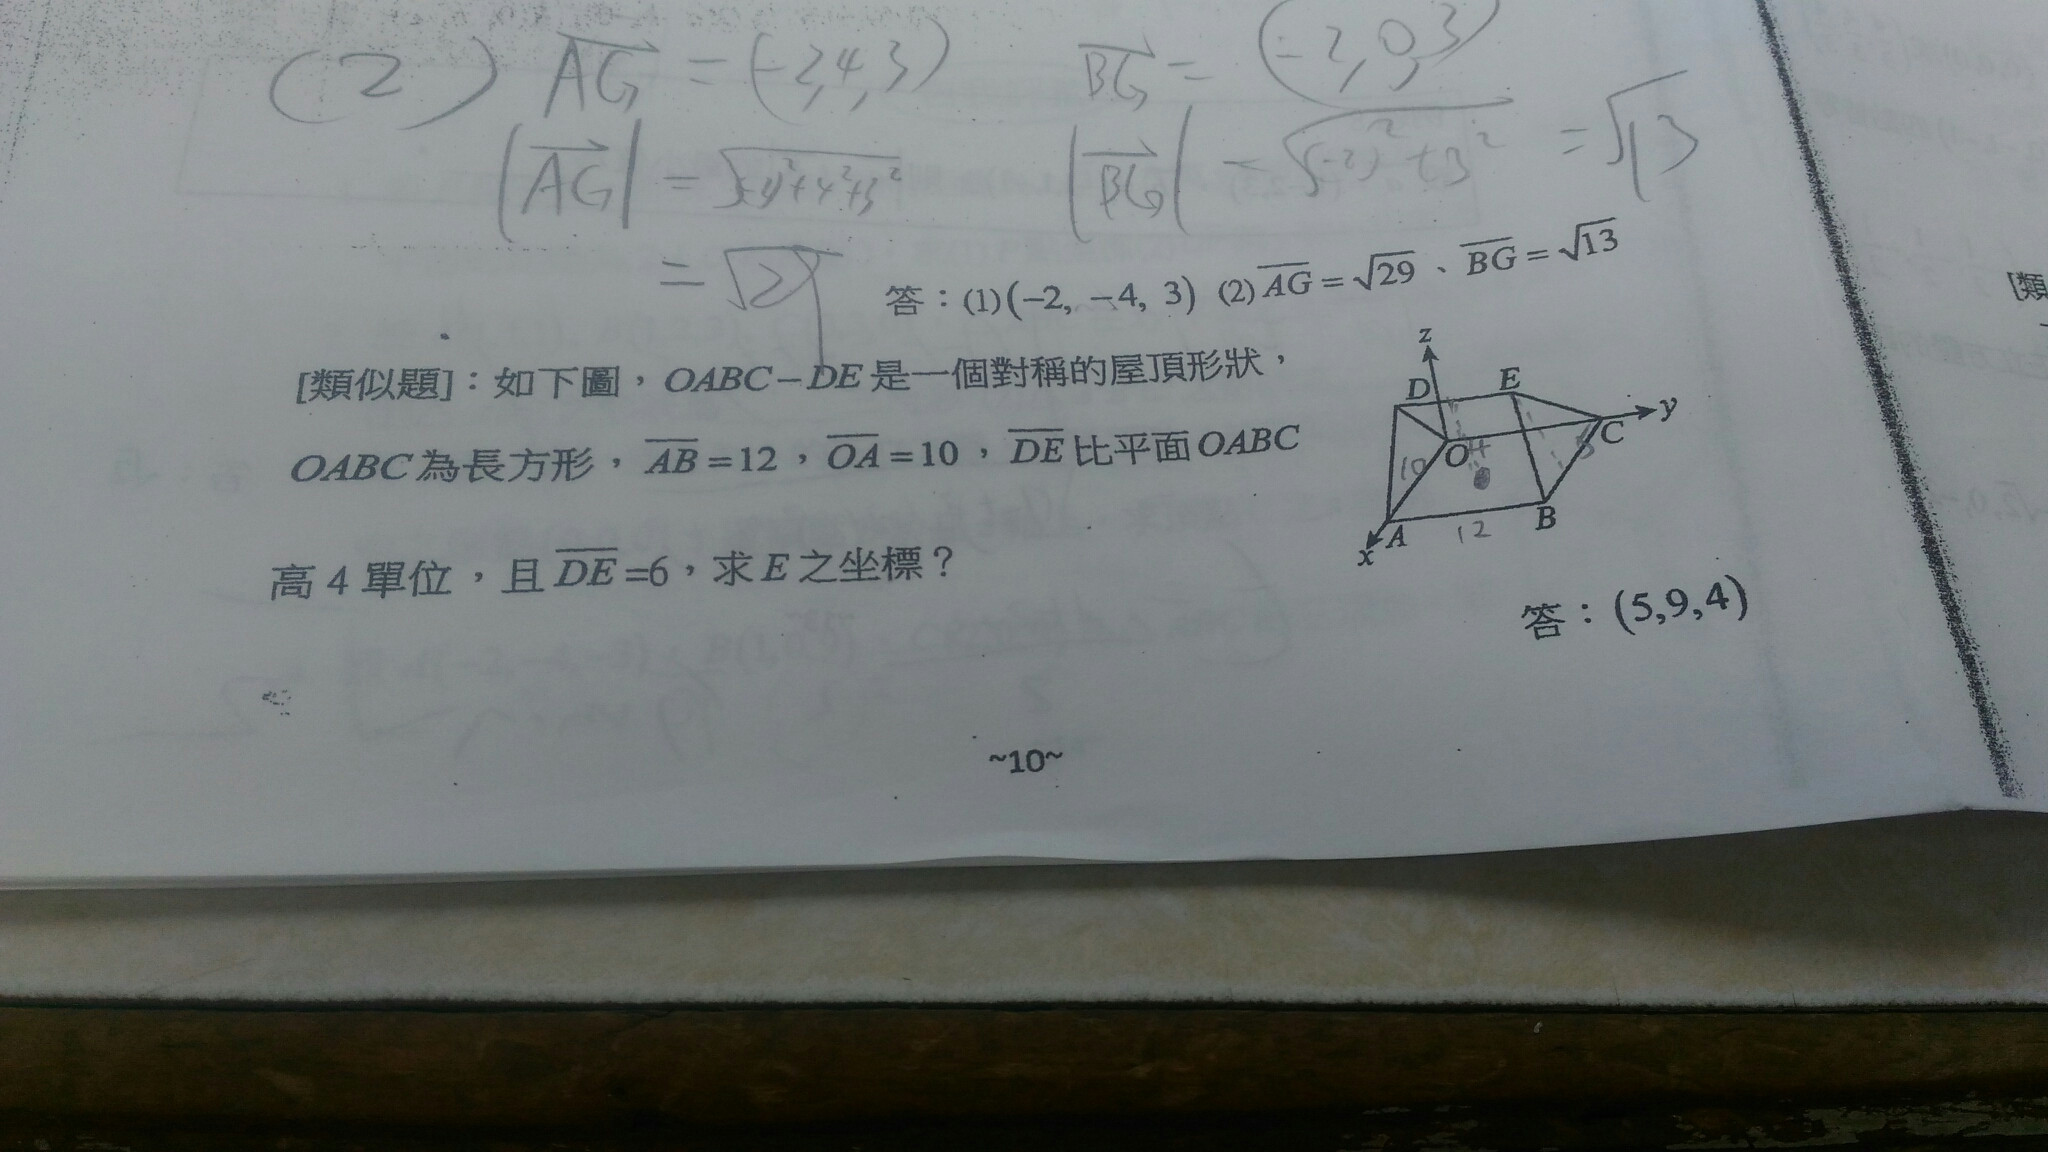 (2) AG = (-2,4,3) BG = (-2,0,3)
|AG| = √(-2)²+4²+3² |BG| = √(-2)²+3² = √13
= √29
答：(1)(−2, −4, 3) (2) AG = √29、BG = √13
[類似題]：如下圖，OABC−DE是一個對稱的屋頂形狀，
OABC為長方形，AB=12，OA=10，DE比平面OABC
高4單位，且DE=6，求E之坐標？
z
D E
y
O 4 C 5
10
A 12 B
x
答：(5,9,4)
~10~
[類